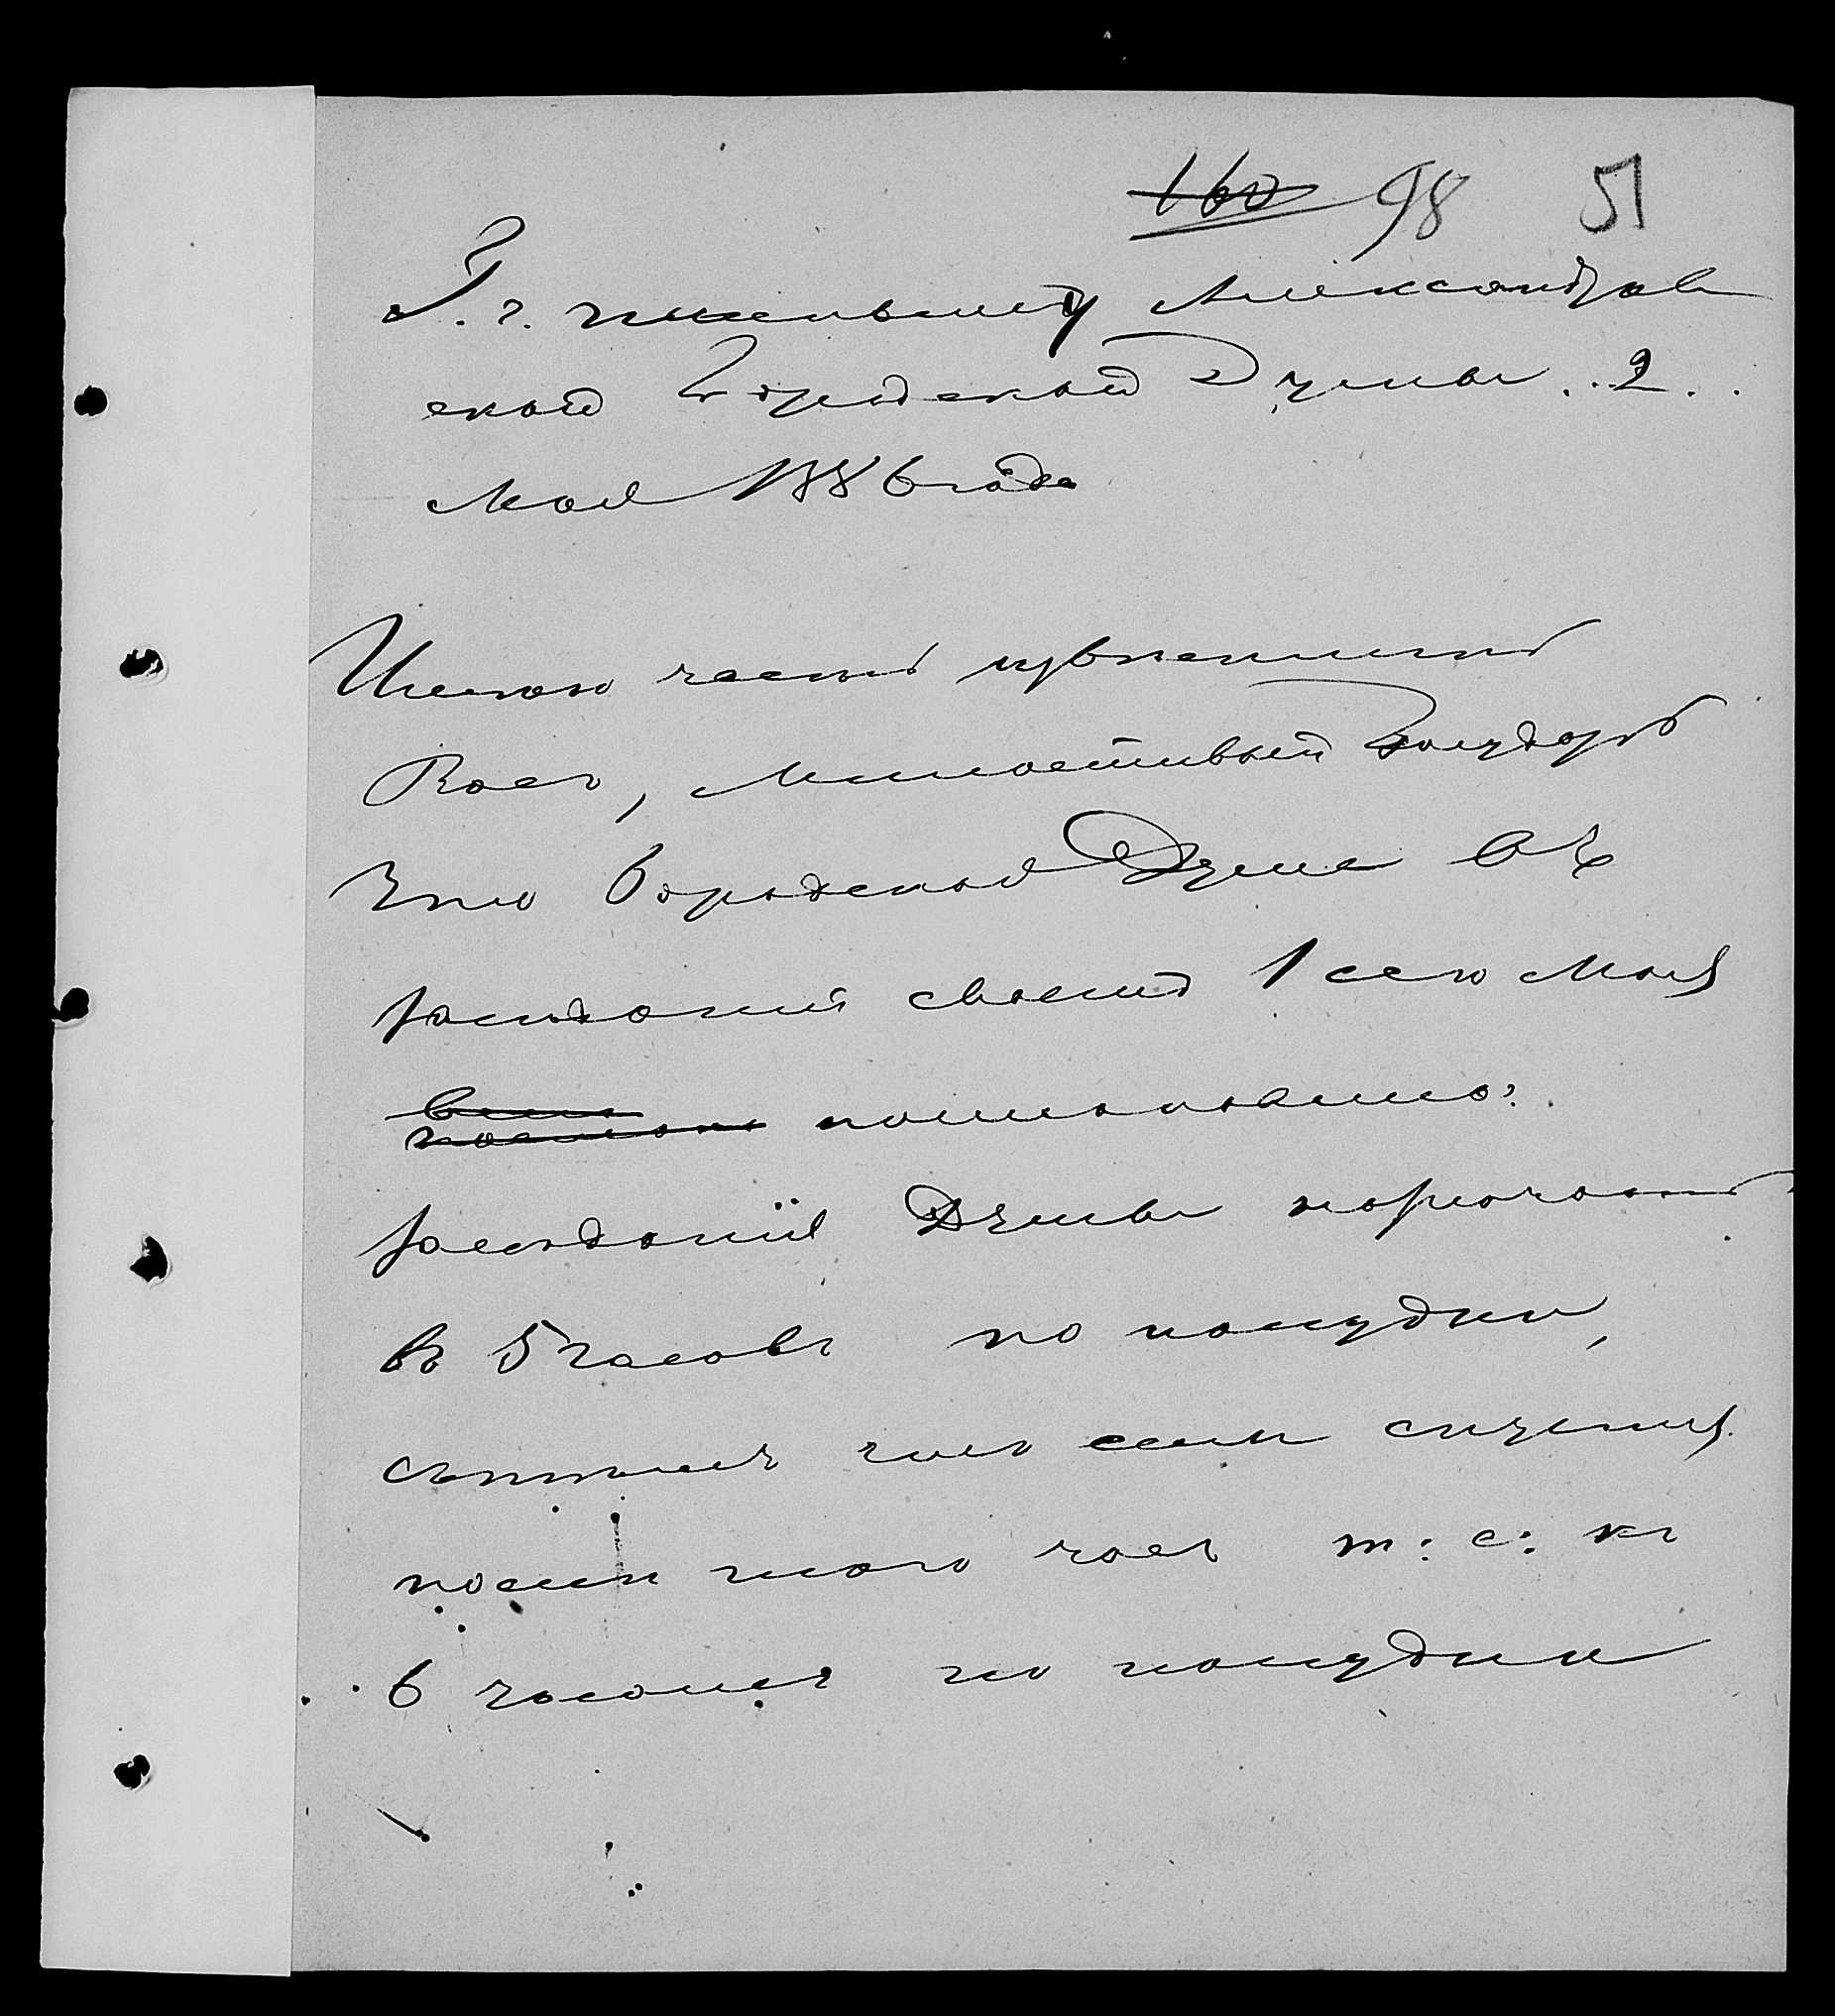 160 98 51
Г. г. гласному Александров
ской Городской Думы. 2.
Мая 1886 года
Имею честь увѣдомить
Васъ, Милостивый Государь
Что Городская Дума въ
засѣданіи своемъ 1 сего Мая
постановила:
засѣданія Думы назначать
въ 5 часовъ по полудни,
считая часъ
послѣ того часъ т: е: къ
6 часамъ по полудни